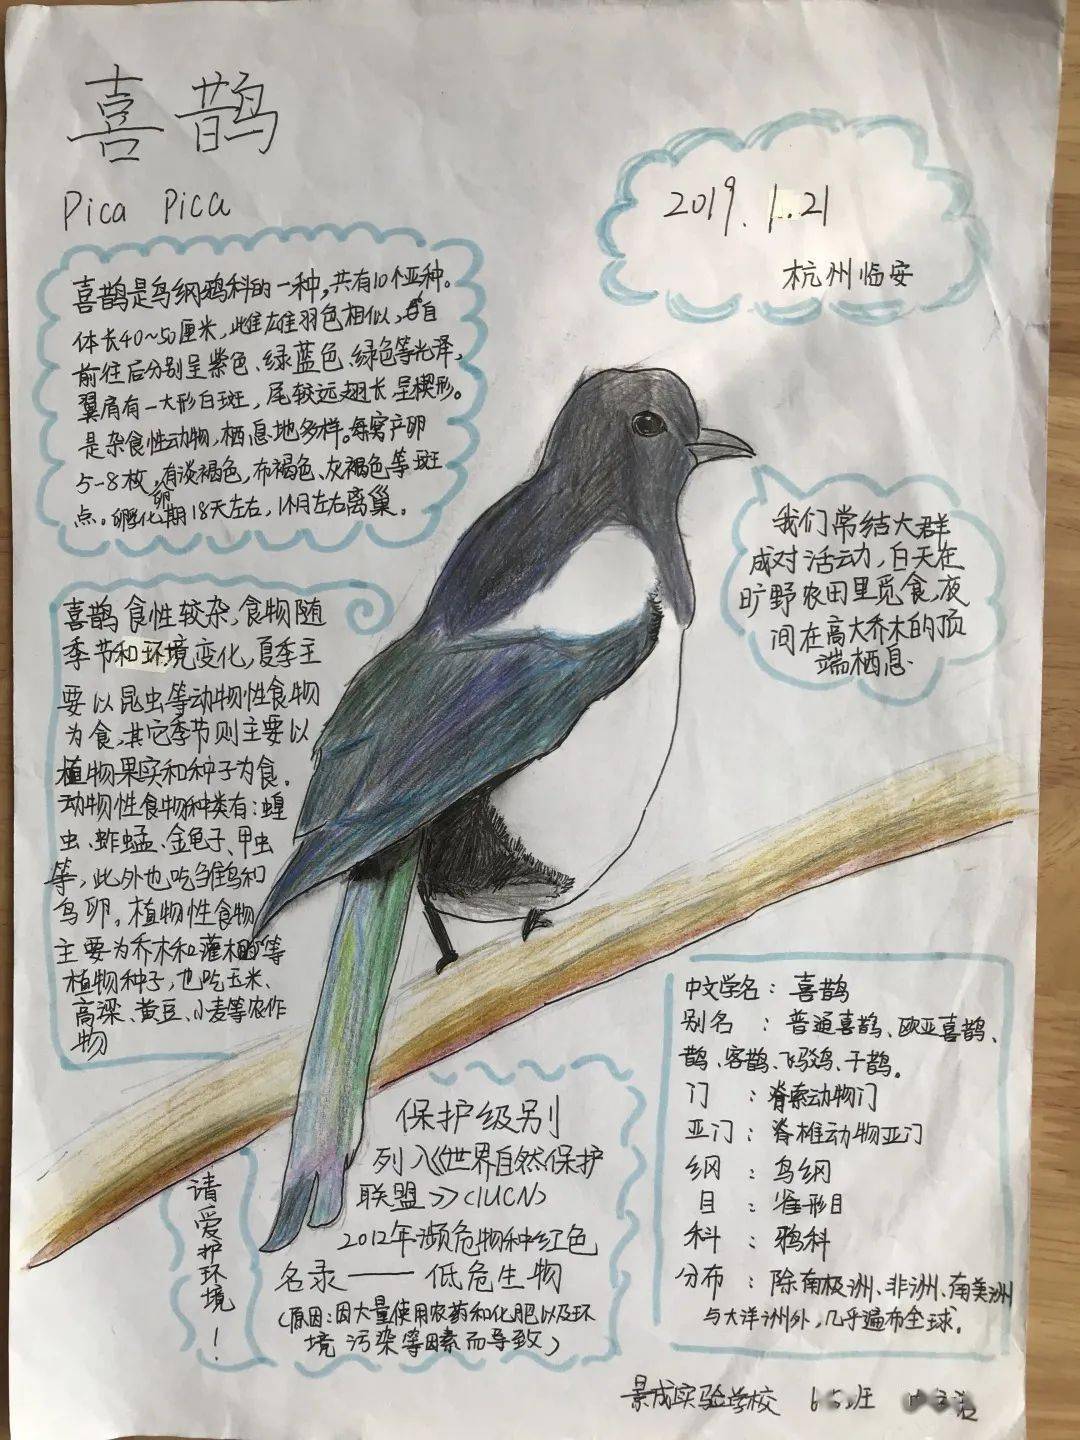 喜鹊
Pica Pica
2019.1.21
杭州临安
喜鹊是鸟纲鸦科的一种,共有10个亚种。
体长40~50厘米,雌雄羽色相似,自
前往后分别呈紫色、绿蓝色、绿色等光泽,
翼肩有一大形白斑,尾较远翅长呈楔形。
是杂食性动物,栖息地多样。每窝产卵
5-8枚,有淡褐色,布褐色、灰褐色等斑
点。卵孵化期18天左右,1个月左右离巢。
我们常结大群
成对活动,白天在
旷野农田里觅食,夜
间在高大乔木的顶
端栖息.
喜鹊食性较杂,食物随
季节和环境变化,夏季主
要以昆虫等动物性食物
为食,其它季节则主要以
植物果实和种子为食.
动物性食物种类有:蝗
虫、蚱蜢、金龟子、甲虫
等,此外也吃雏鸟和
鸟卵。植物性食物
主要为乔木和灌木等
植物种子,也吃玉米、
高梁、黄豆、小麦等农作
物
中文学名:喜鹊
别名:普通喜鹊、欧亚喜鹊、
鹊、客鹊、飞驳鸟、干鹊。
门:脊索动物门
亚门:脊椎动物亚门
纲:鸟纲
目:雀形目
科:鸦科
分布:除南极洲、非洲、南美洲
与大洋洲外,几乎遍布全球.
保护级别
列入《世界自然保护
联盟》<IUCN>
2012年濒危物种红色
名录——低危生物
(原因:因大量使用农药和化肥以及环
境污染等因素而导致)
请爱护环境!
景成实验学校